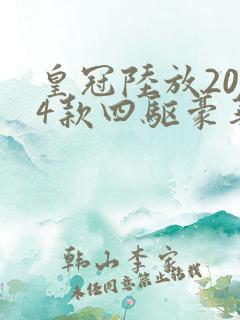 皇冠陸放20
4款四駆豪
韩山李家
未经同意禁止转载